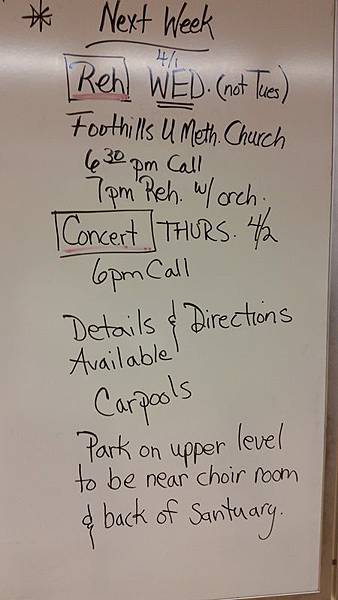 * Next Week
4/1
Reh WED. (not Tues)
Foothills U Meth. Church
6 30 pm Call
7pm Reh. w/ orch.
Concert THURS. 4/2
6pm Call
Details & Directions
Available
Carpools
Park on upper level
to be near choir room
& back of Santuary.